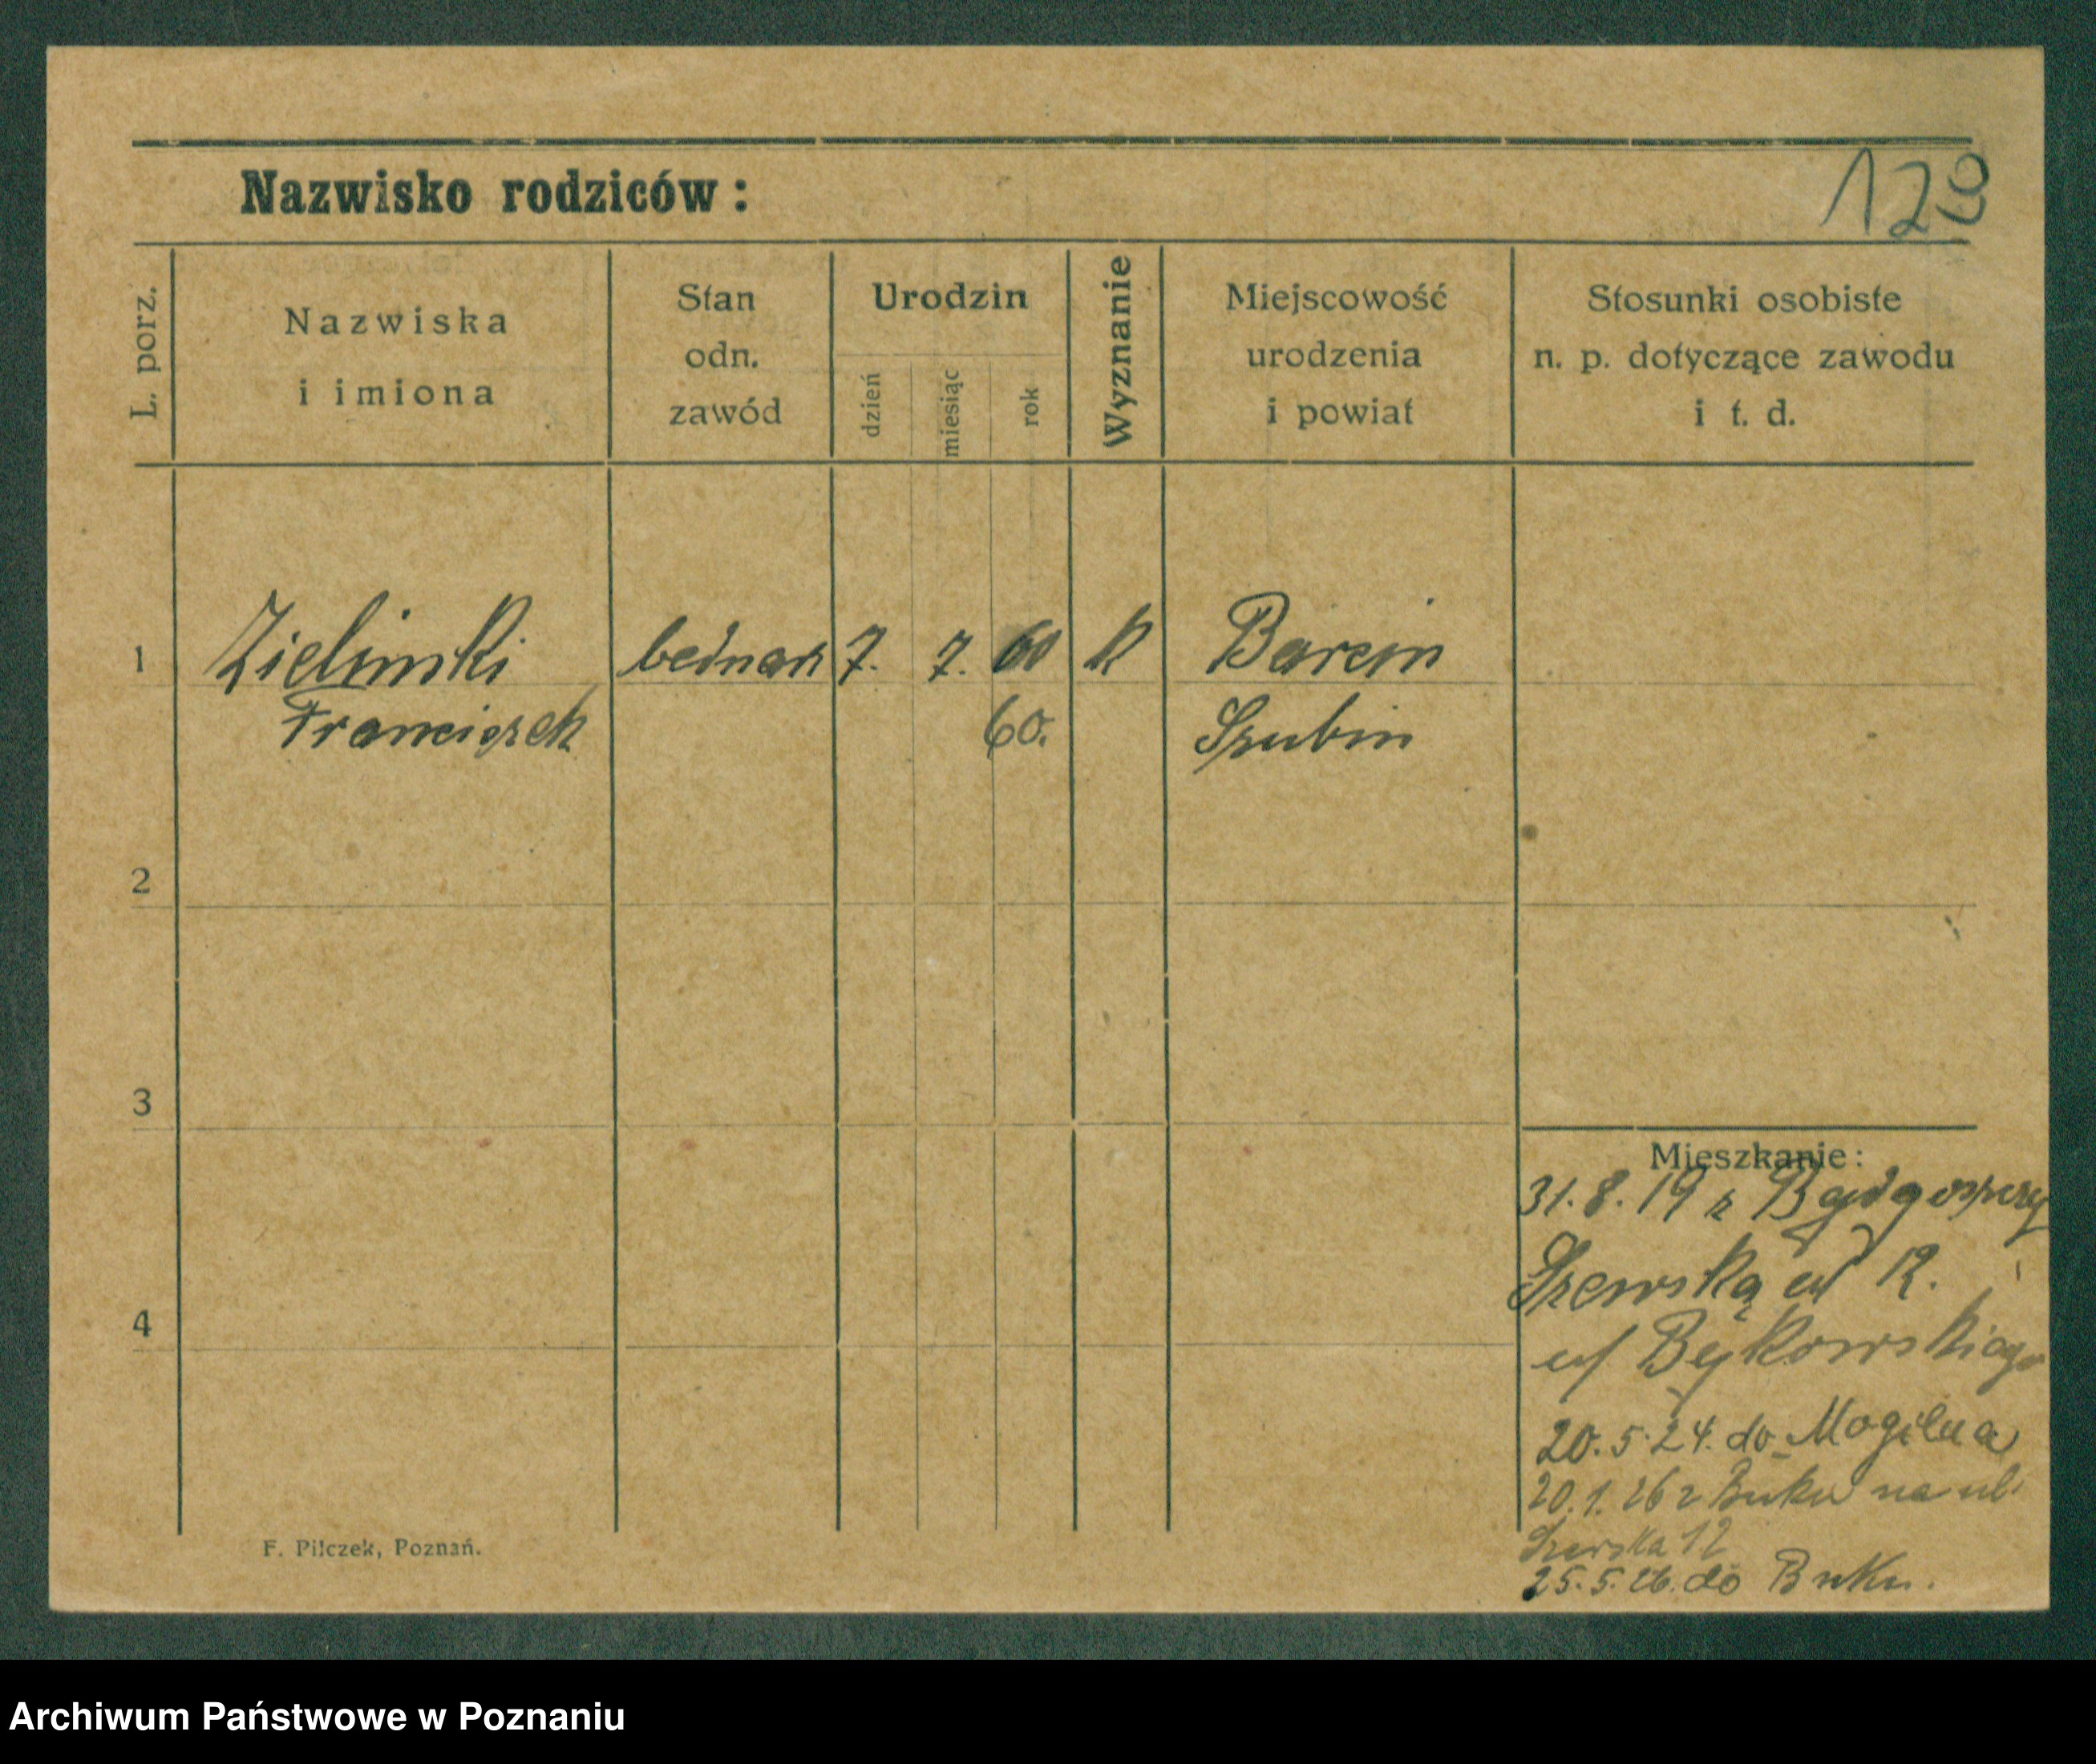 Nazwisko rodziców:
128
L. porz.
Nazwiska
i imiona
Stan
odn.
zawód
Urodzin
dzień
miesiąc
rok
Wyznanie
Miejscowość
urodzenia
i powiat
Stosunki osobiste
n. p. dotyczące zawodu
i t. d.
1
Zielinski
Franciszek
bednarz
7. 7. 60
60.
k
Barcin
Szubin
2
3
4
Mieszkanie:
31. 8. 19 z Bydgoszczy
Szewska 12.
Bykowskiego
20. 5. 24. do Mogilna
20. 1. 26 z Buku na ul.
Szewska 12
25. 5. 26. do Buku.
F. Pilczek, Poznań.
Archiwum Państwowe w Poznaniu